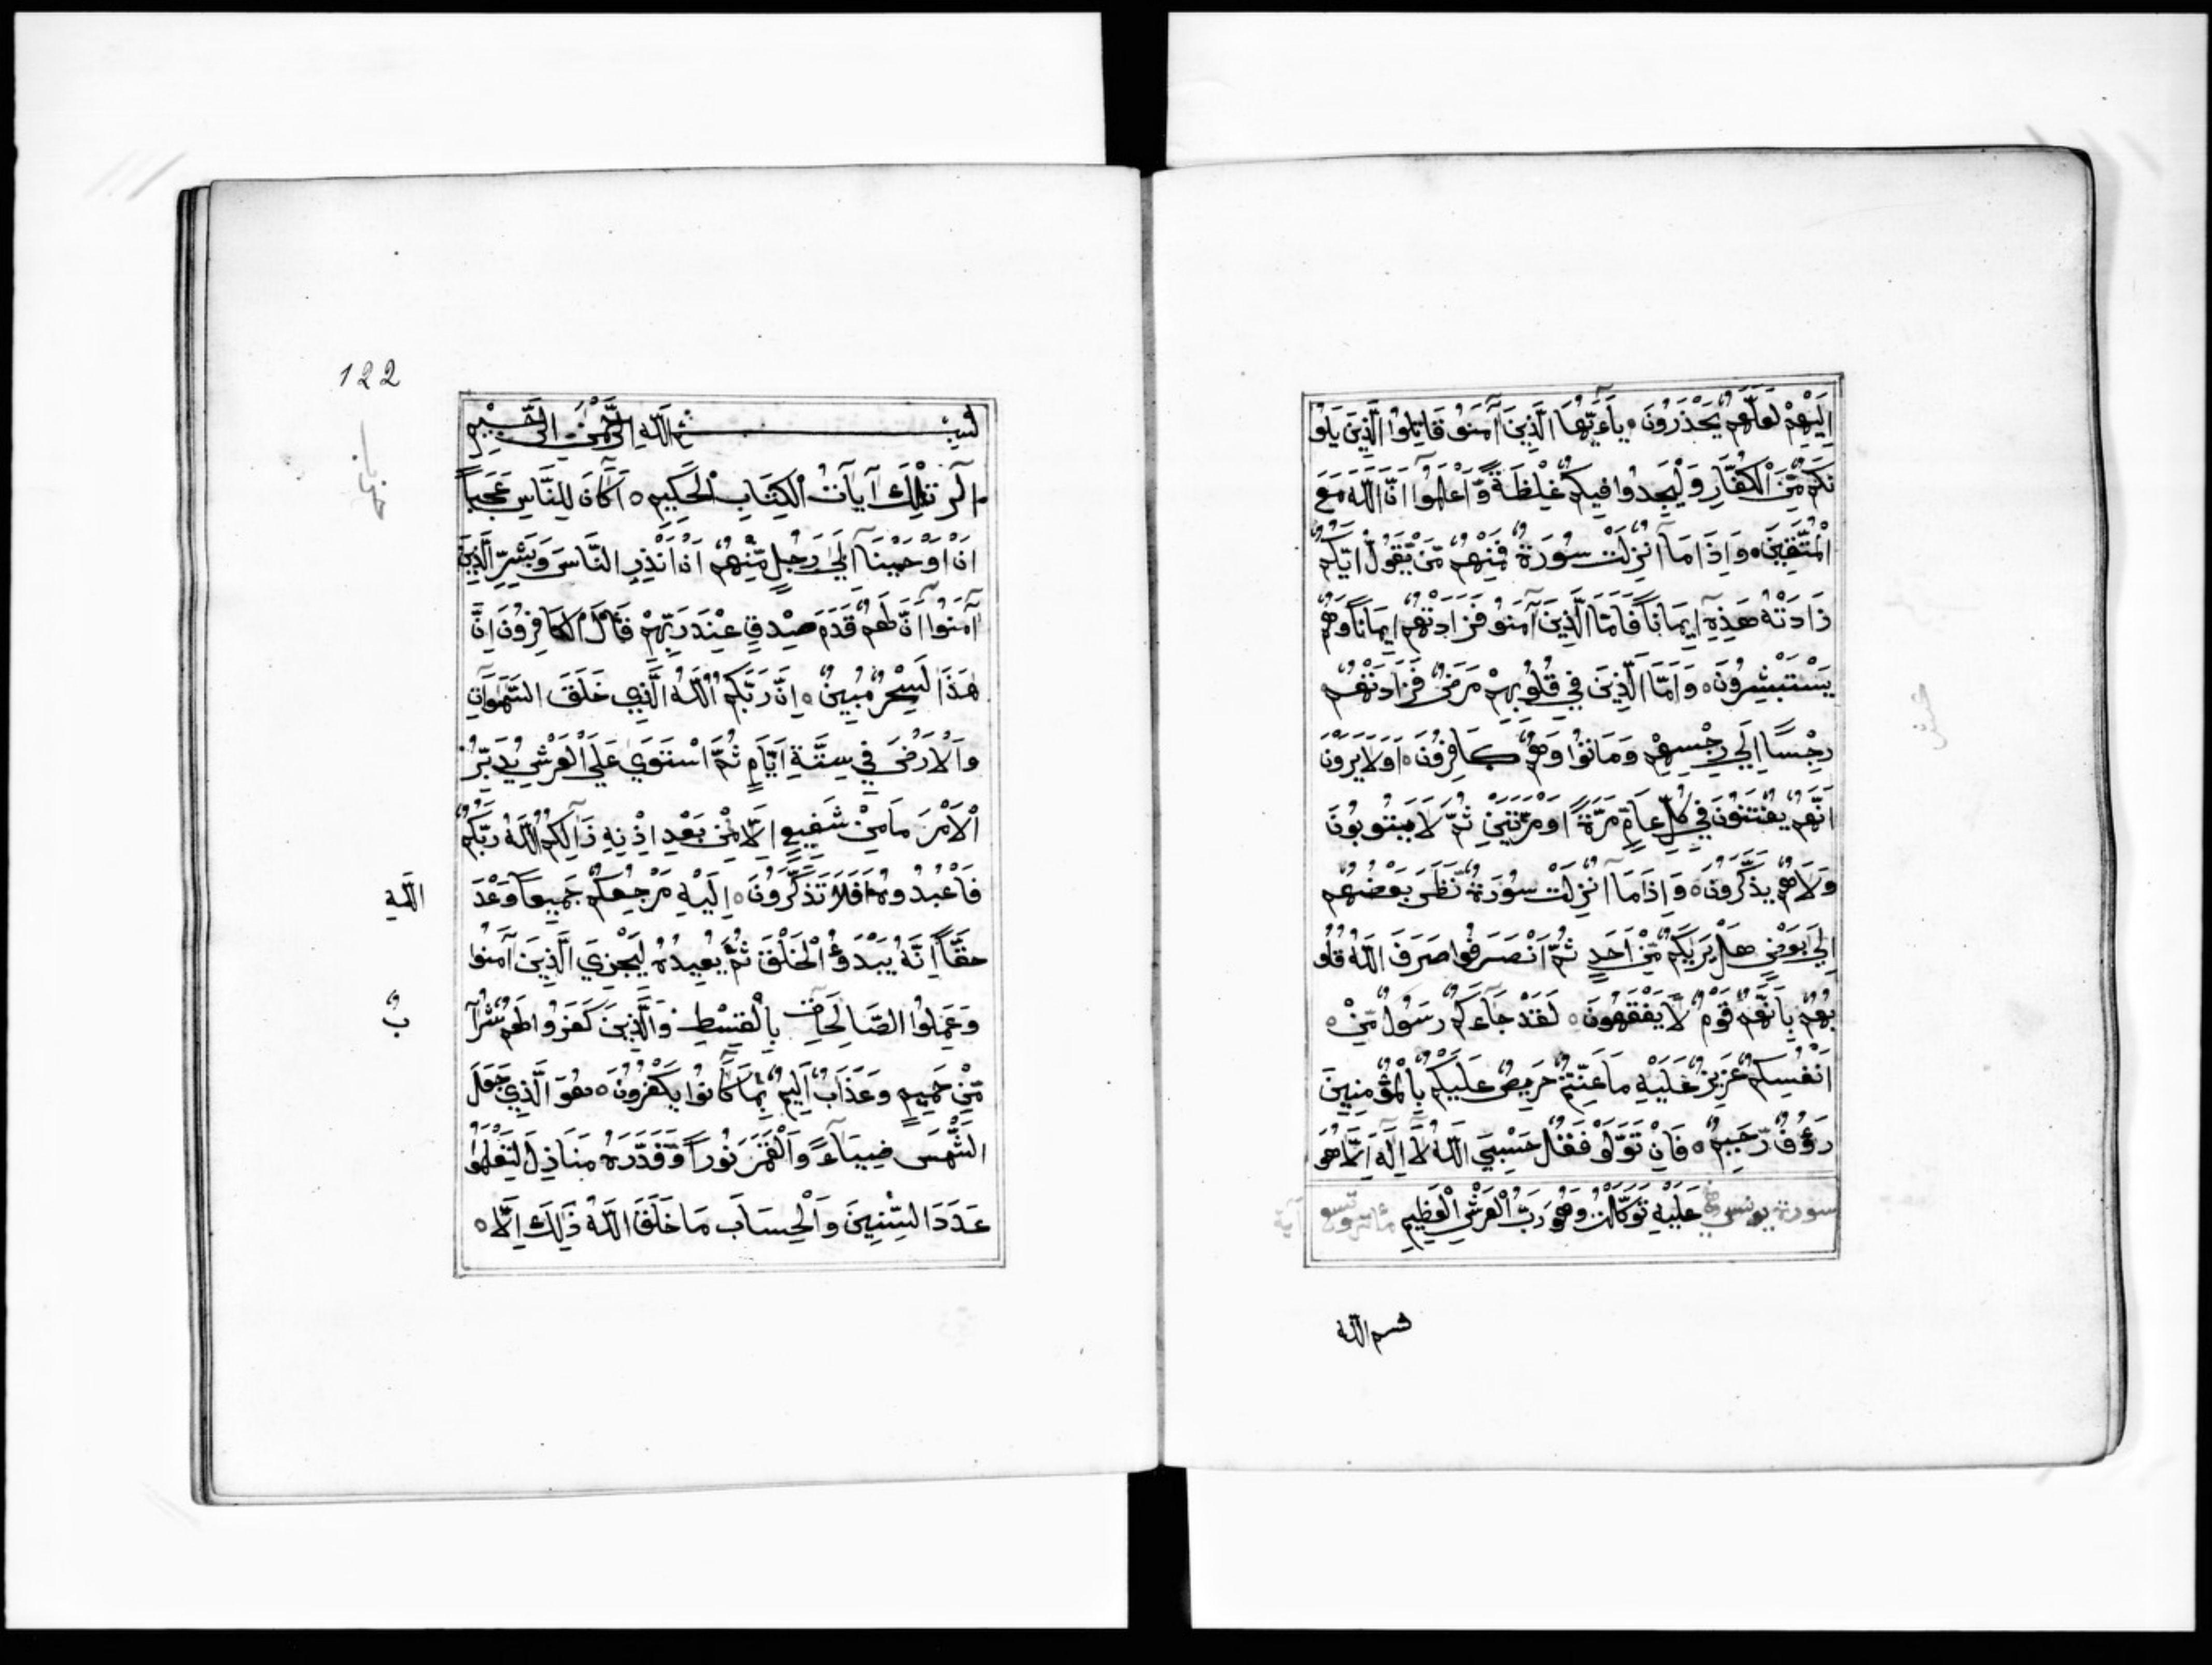 اِلَيْهِمْ لَعَلَّهُمْ يَحْذَرُونَ ه يٰاَءَيُّهَا الَّذِينَ آمَنُو قَاتِلُوا الَّذِينَ يَلُو
نَكُمْ مِّنَ الْكُفَّارِ وَلْيَجِدُوا فِيكُمْ غِلْظَةً وَّاعْلَمُوا اَنَّ اللّٰهَ مَعَ
الْمُتَّقِينَ ه وَاِذَا مَا اُنْزِلَتْ سُورَةٌ فَمِنْهُمْ مَّنْ يَّقُولُ اَيُّكُمْ
زَادَتْهُ هَذِهِ اِيمَانًا فَاَمَّا الَّذِينَ آمَنُو فَزَادَتْهُمْ اِيمَانًا وَهُمْ
يَسْتَبْشِرُونَ ه وَاَمَّا الَّذِينَ فِي قُلُوبِهِمْ مَرَضٌ فَزَادَتْهُمْ
رِجْسًا اِلَي رِجْسِهِمْ وَمَاتُوا وَهُمْ كَافِرُونَ ه اَوَلَا يَرَوْنَ
اَنَّهُمْ يُفْتَنُونَ فِي كُلِّ عَامٍ مَرَّةً اَوْ مَرَّتَيْنِ ثُمَّ لَا يَتُوبُونَ
وَلَا هُمْ يَذَّكَّرُونَ ه وَاِذَا مَا اُنْزِلَتْ سُورَةٌ نَّظَرَ بَعْضُهُمْ
اِلَي بَعْضٍ هَلْ يَرَيٰكُمْ مِّنْ اَحَدٍ ثُمَّ انْصَرَفُوا صَرَفَ اللّٰهُ قُلُو
بَهُمْ بِاَنَّهُمْ قَوْمٌ لَّا يَفْقَهُونَ ه لَقَدْ جَآءَكُمْ رَسُولٌ مِّنْ ه
اَنْفُسِكُمْ عَزِيزٌ عَلَيْهِ مَا عَنِتُّمْ حَرِيصٌ عَلَيْكُمْ بِالْمُؤْمِنِينَ
رَءُوفٌ رَّحِيمٌ ه فَاِنْ تَوَلَّوْ فَقُلْ حَسْبِيَ اللّٰهُ لَا اِلٰهَ اِلَّا هُوَ
سورة يونس عَلَيْهِ تَوَكَّلْتُ وَهُوَ رَبُّ الْعَرْشِ الْعَظِيمِ
بسم الله
122
بسم اللّٰهِ الرَّحْمٰنِ الرَّحِيمِ
الٓر تِلْكَ آيَاتُ الْكِتَابِ الْحَكِيمِ ه اَكَانَ لِلنَّاسِ عَجَبًا
اَنْ اَوْحَيْنَا اِلَيٰ رَجُلٍ مِّنْهُمْ اَنْ اَنْذِرِ النَّاسَ وَبَشِّرِ الَّذِينَ
آمَنُوا اَنَّ لَهُمْ قَدَمَ صِدْقٍ عِنْدَ رَبِّهِمْ قَالَ الْكَافِرُونَ اِنَّ
هَذَا لَسِحْرٌ مُبِينٌ ه اِنَّ رَبَّكُمُ اللّٰهُ الَّذِي خَلَقَ السَّمٰوَاتِ
وَالْاَرْضَ فِي سِتَّةِ اَيَّامٍ ثُمَّ اسْتَوَي عَلَي الْعَرْشِ يُدَبِّرُ
الْاَمْرَ مَا مِنْ شَفِيعٍ اِلَّا مِنْ بَعْدِ اِذْنِهِ ذَالِكُمُ اللّٰهُ رَبُّكُمْ
فَاعْبُدُوهُ اَفَلَا تَذَكَّرُونَ ه اِلَيْهِ مَرْجِعُكُمْ جَمِيعًا وَعْدَ
اللّٰهِ
حَقًّا اِنَّهُ يَبْدَؤُ الْخَلْقَ ثُمَّ يُعِيدُهُ لِيَجْزِيَ الَّذِينَ آمَنُوا
وَعَمِلُوا الصَّالِحَاتِ بِالْقِسْطِ وَالَّذِينَ كَفَرُوا لَهُمْ شَرَا
بٌ
مِّنْ حَمِيمٍ وَعَذَابٌ اَلِيمٌ بِمَا كَانُوا يَكْفُرُونَ ه هُوَ الَّذِي جَعَلَ
الشَّمْسَ ضِيَآءً وَالْقَمَرَ نُورًا وَّقَدَّرَهُ مَنَازِلَ لِتَعْلَمُوا
عَدَدَ السِّنِينَ وَالْحِسَابَ مَا خَلَقَ اللّٰهُ ذَالِكَ اِلَّا ه